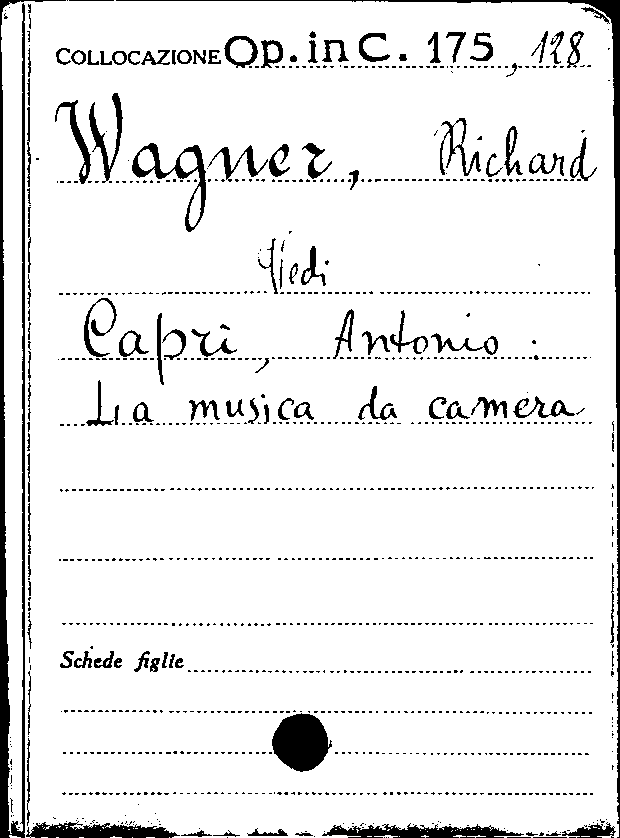 COLLOCAZIONE Op. in C. 175, 128
Wagner, Richard
Vedi
Capri, Antonio :
La musica da camera
Schede figlie